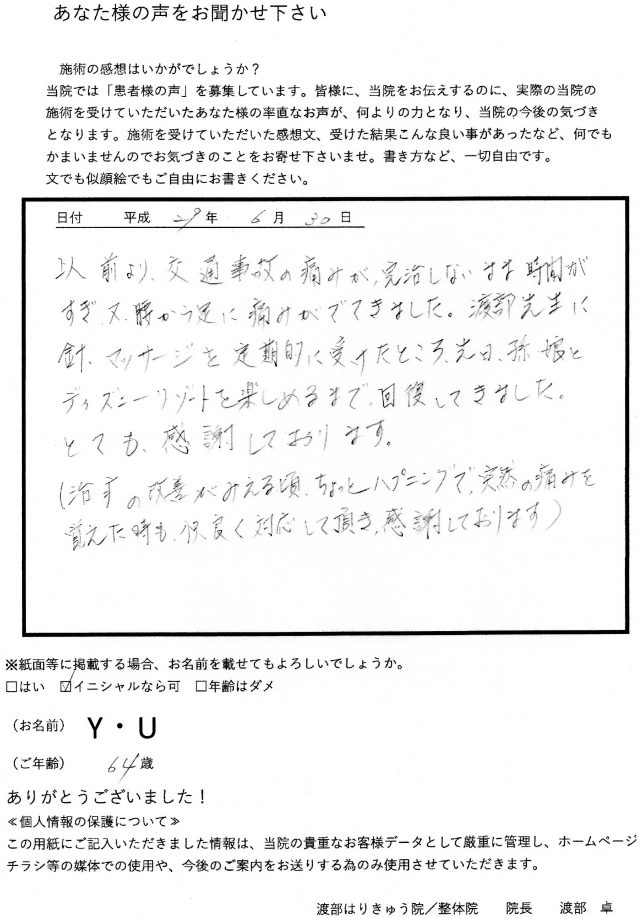 あなた様の声をお聞かせ下さい
施術の感想はいかがでしょうか？
当院では「患者様の声」を募集しています。皆様に、当院をお伝えするのに、実際の当院の
施術を受けていただいたあなた様の率直なお声が、何よりの力となり、当院の今後の気づき
となります。施術を受けていただいた感想文、受けた結果こんな良い事があったなど、何でも
かまいませんのでお気づきのことをお寄せ下さいませ。書き方など、一切自由です。
文でも似顔絵でもご自由にお書きください。
日付 平成 29 年 6 月 30 日
以前より、交通事故の痛みが、完治しないまま時間が
すぎ、又、腰から足に痛みがでてきました。渡部先生に
針、マッサージを定期的に受けたところ、先日、孫娘と
ディズニーリゾートを楽しめるまで、回復してきました。
とても、感謝しております。
(治すの改善がみえる頃、ちょっとハプニングで、突然の痛みを
覚えた時も、良く対応して頂き、感謝しております)
※紙面等に掲載する場合、お名前を載せてもよろしいでしょうか。
□はい ☑イニシャルなら可 □年齢はダメ
（お名前） Y・U
（ご年齢） 64歳
ありがとうございました！
≪個人情報の保護について≫
この用紙にご記入いただきました情報は、当院の貴重なお客様データとして厳重に管理し、ホームページ
チラシ等の媒体での使用や、今後のご案内をお送りする為のみ使用させていただきます。
渡部はりきゅう院／整体院 院長 渡部 卓